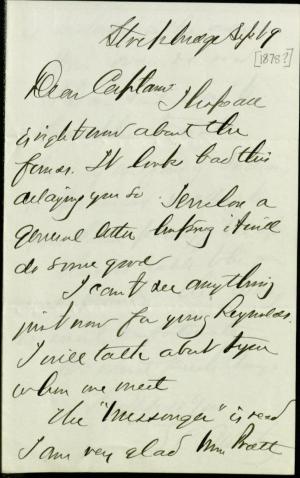 Stockbridge Sept 19
[1878?]
Dear Captain I hope all
is right now about the
It looks bad this
delaying you so I enclose a
general letter hoping it will
do some good
I can't see anything
just now for young Reynolds.
I will talk about to you
when we meet
The "Messenger" is read
I am very glad Mrs Pratt